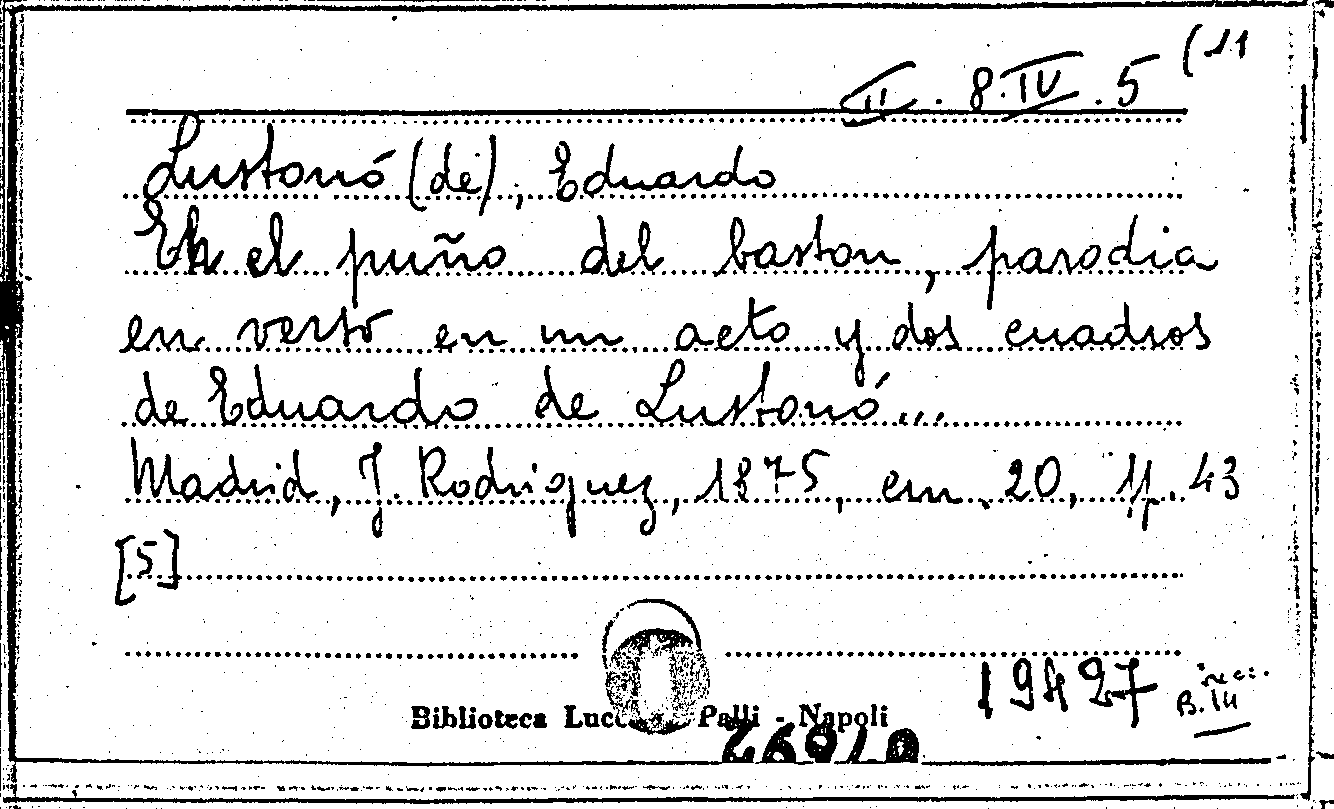 II. 8. IV. 5 (11
Lustonó (de), Eduardo
En el puño del baston, parodia
en verso en un acto y dos cuadros
de Eduardo de Lustonó...
Madrid, J. Rodriguez, 1875, cm. 20, pp. 43
[5]
19427
B. IU
Biblioteca Lucchesi Palli - Napoli